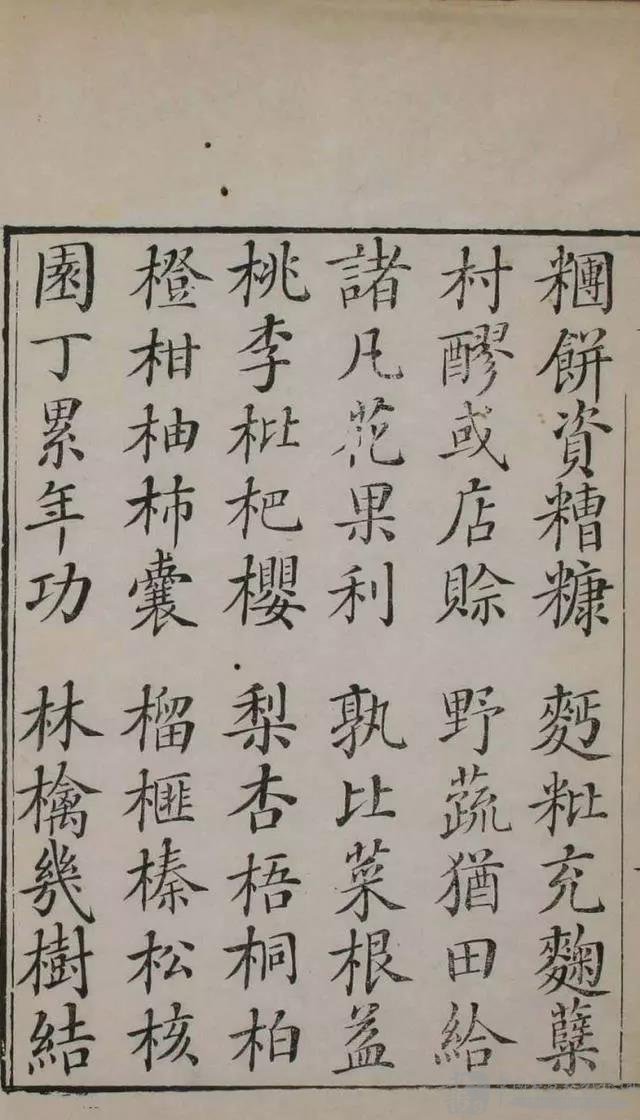 糰餅資糟糠 麫粃充麴糵
村醪或店賒 野蔬猶田給
諸凡花果利 孰比菜根益
桃李枇杷櫻 梨杏梧桐柏
橙柑柚柿囊 榴榧榛松核
園丁累年功 林檎幾樹結